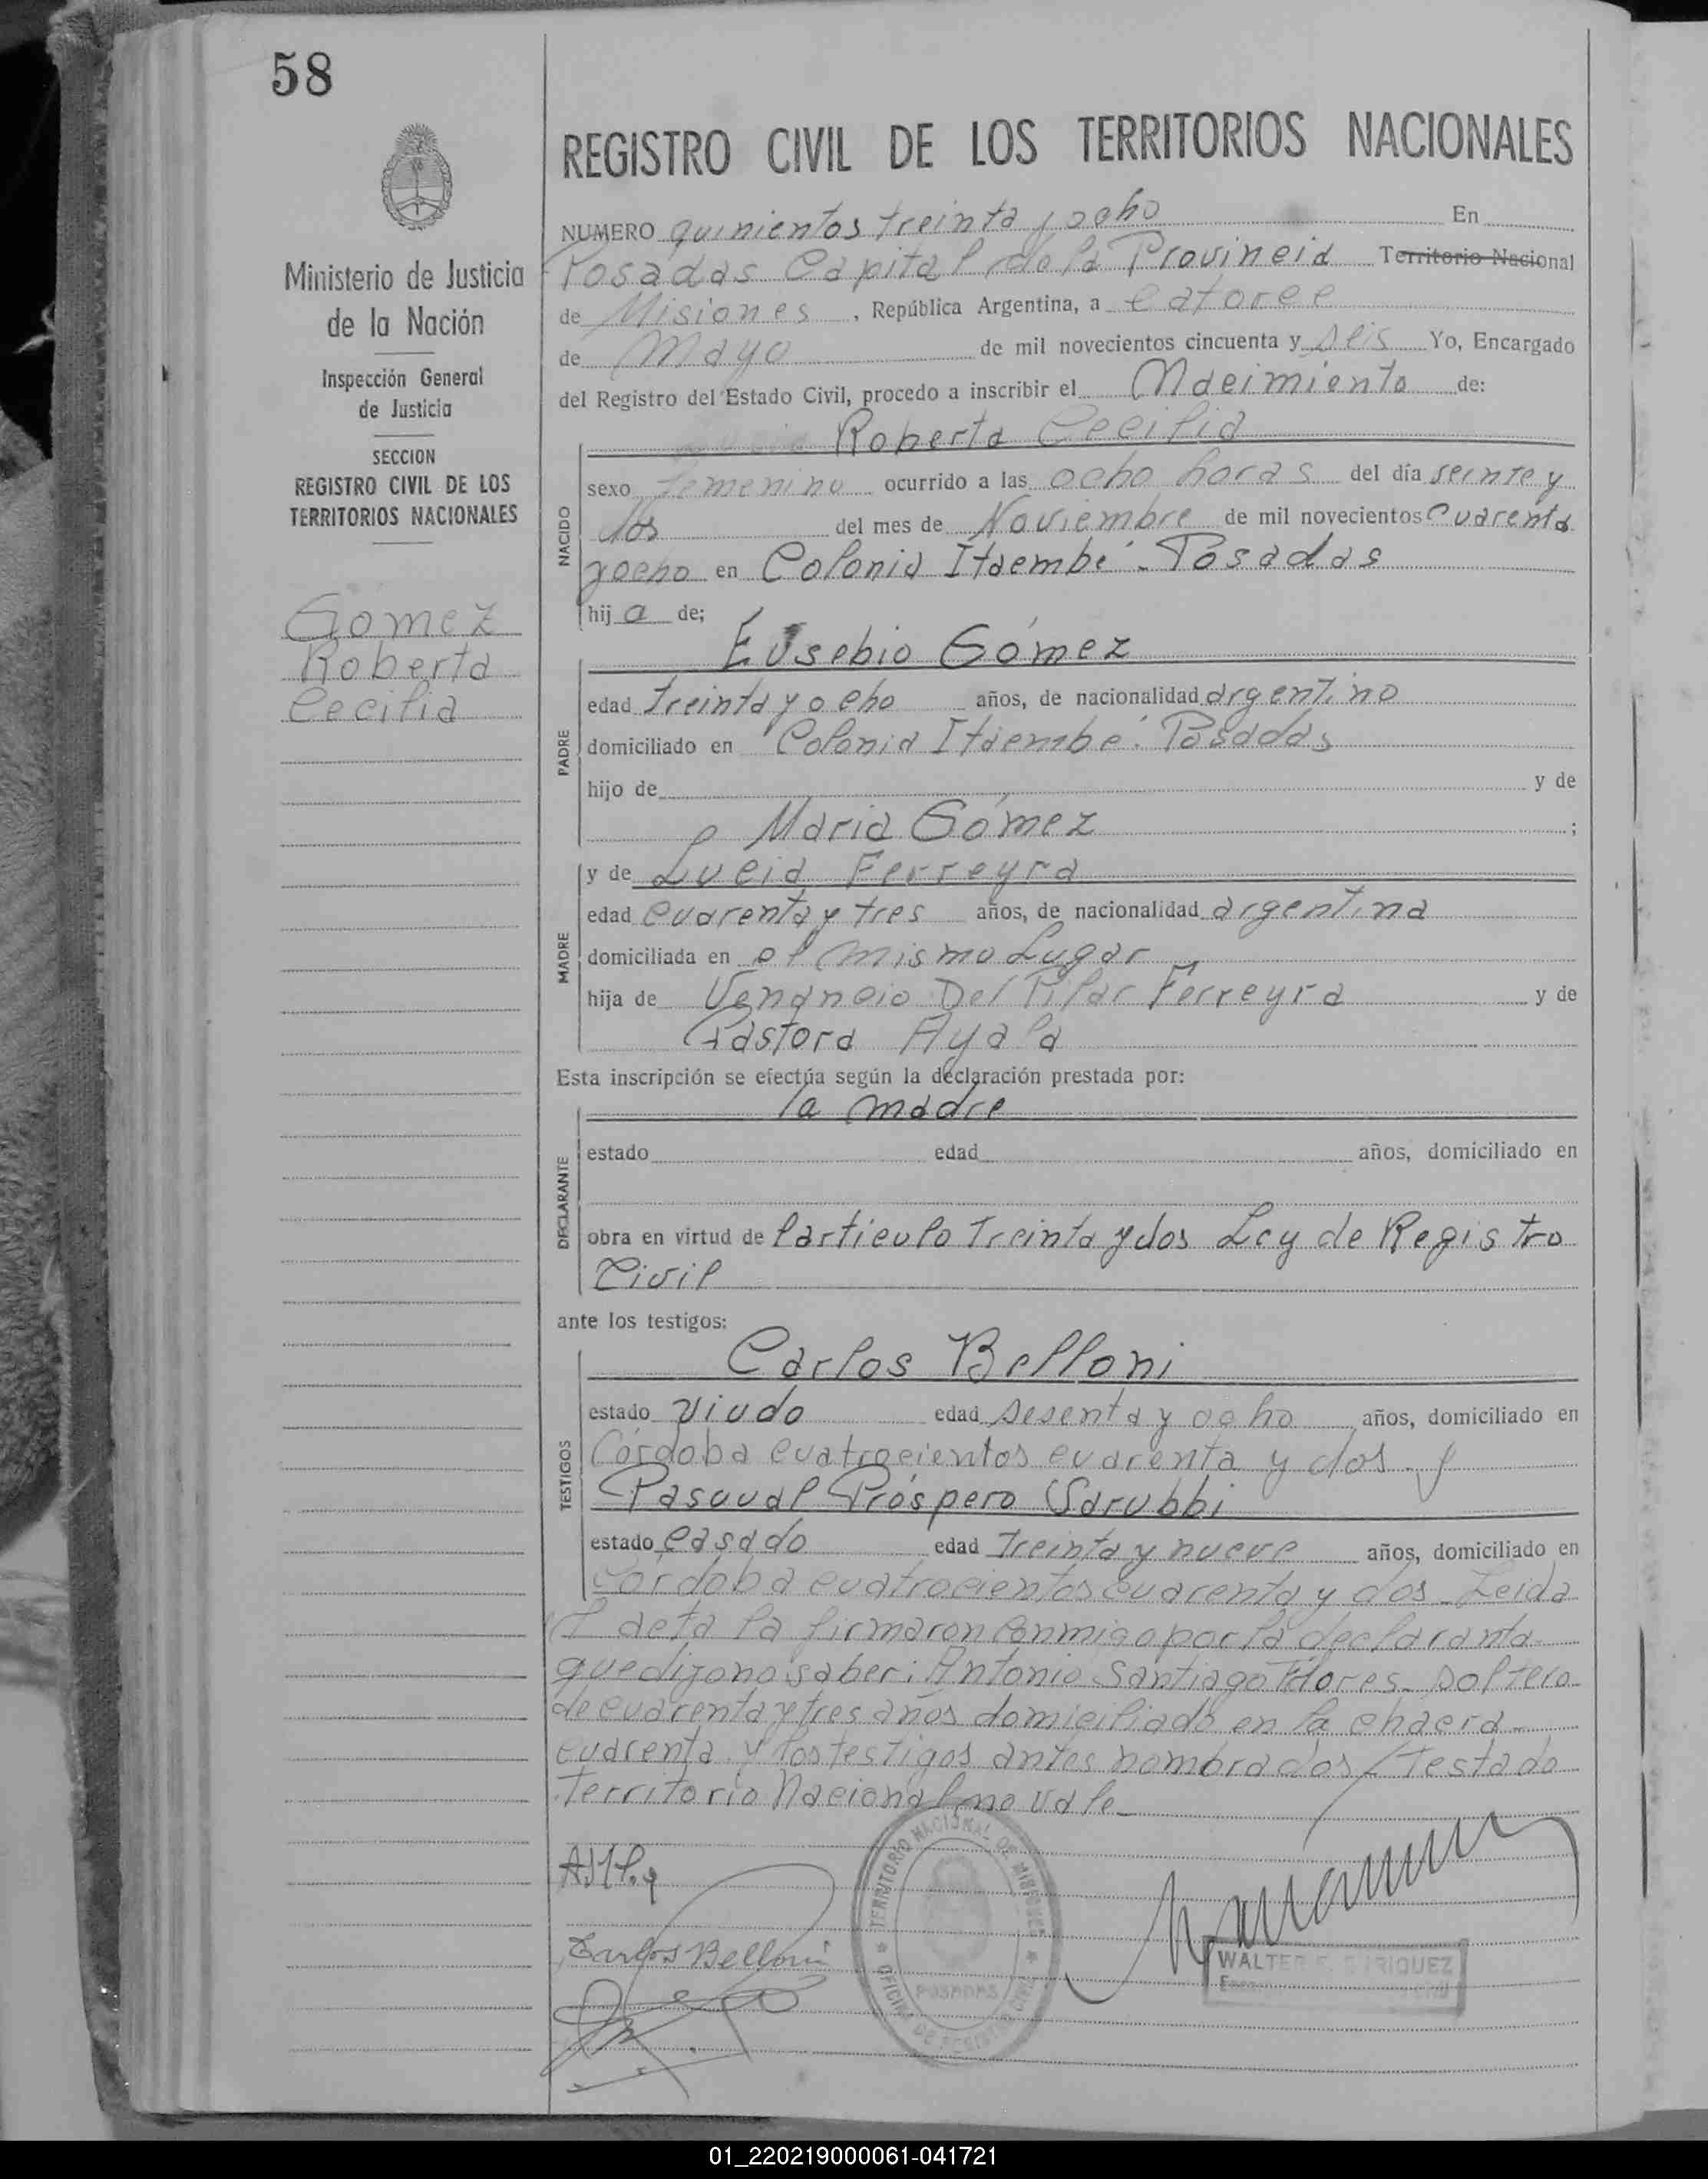 58
REGISTRO CIVIL DE LOS TERRITORIOS NACIONALES
Ministerio de Justicia
de la Nación
Inspección General
de Justicia
SECCION
REGISTRO CIVIL DE LOS
TERRITORIOS NACIONALES
Gomez
Roberta
Cecilia
NUMERO quinientos treinta y ocho En
Posadas Capital de la Provincia Territorio Nacional
de Misiones, República Argentina, a catorce
de Mayo de mil novecientos cincuenta y seis Yo, Encargado
del Registro del Estado Civil, procedo a inscribir el Nacimiento de:
NACIDO
Roberta Cecilia
sexo femenino ocurrido a las ocho horas del día veinte y
dos del mes de Noviembre de mil novecientos cuarenta
y ocho en Colonia Itaembé. Posadas
hija de;
PADRE
Eusebio Gómez
edad treinta y ocho años, de nacionalidad argentino
domiciliado en Colonia Itaembé. Posadas
hijo de y de
Maria Gómez ;
MADRE
y de Lucia Ferreyra
edad cuarenta y tres años, de nacionalidad argentina
domiciliada en el mismo Lugar
hija de Venancio Del Pilar Ferreyra y de
Pastora Ayala
Esta inscripción se efectúa según la declaración prestada por:
DECLARANTE
la madre
estado edad años, domiciliado en
obra en virtud de l'articulo Treinta y dos Ley de Registro
Civil
ante los testigos:
TESTIGOS
Carlos Belloni
estado viudo edad sesenta y ocho años, domiciliado en
Córdoba cuatrocientos cuarenta y dos y
Pascual Próspero Sarubbi
estado casado edad treinta y nueve años, domiciliado en
Córdoba cuatrocientos cuarenta y dos. Leida
l acta la firmaron conmigo por la declaranta
que dijo no saber: Antonio Santiago Flores. soltero
de cuarenta y tres años domiciliado en la chacra
cuarenta y los testigos antes nombrados / Testado
Territorio Nacional, no vale_
Carlos Belloni
TERRITORIO NACIONAL DE MISIONES
OFICINA DE REGISTRO CIVIL
POSADAS
WALTER
01_220219000061-041721